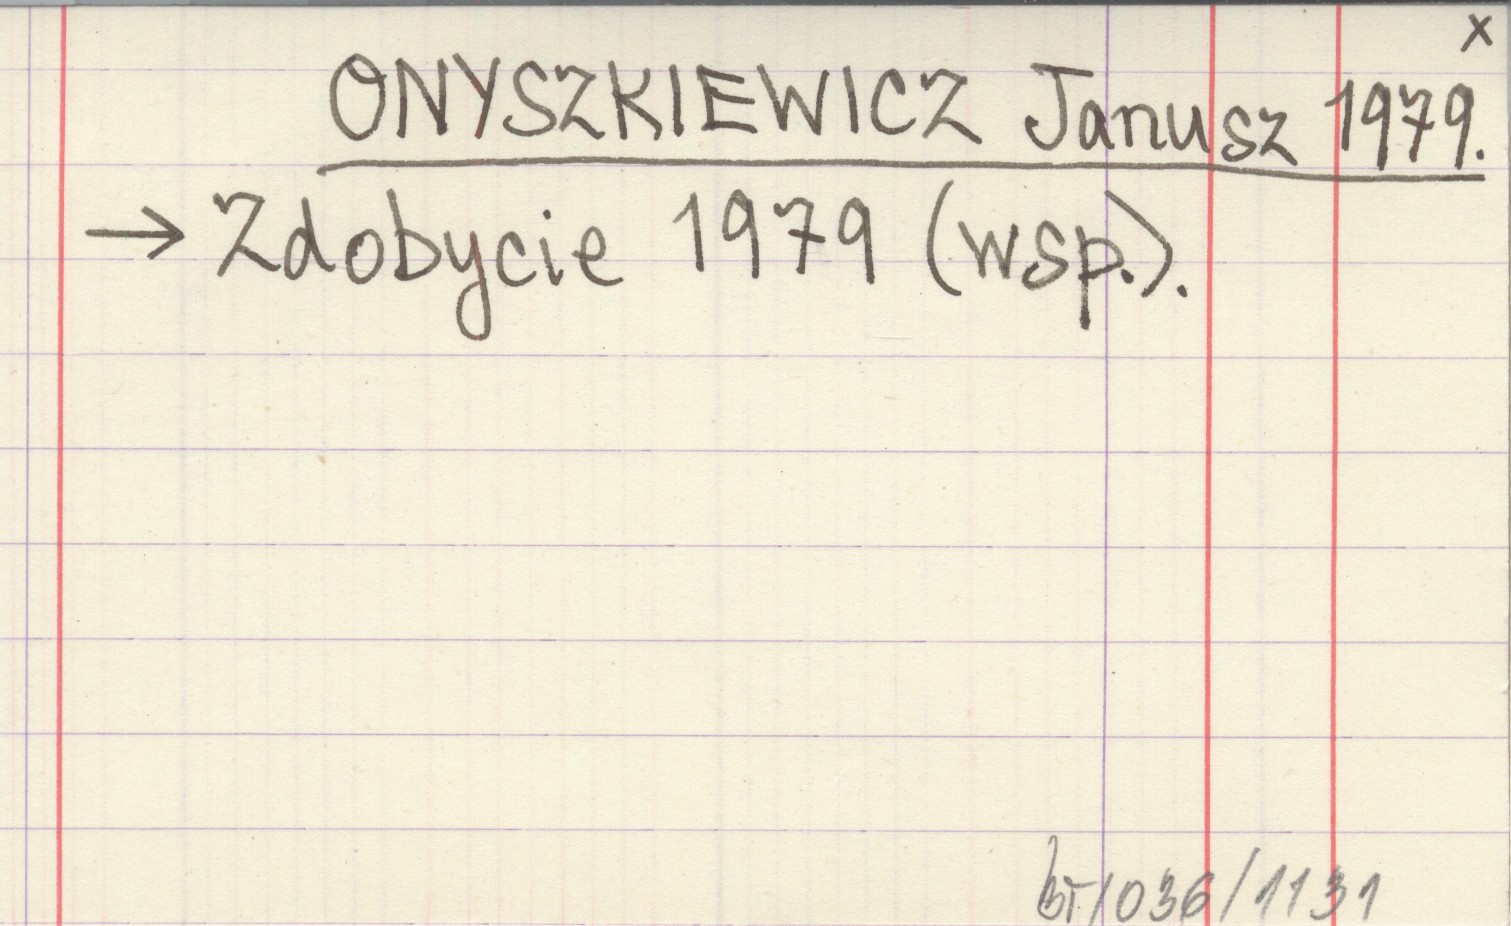 x
ONYSZKIEWICZ Janusz 1979.
→ Zdobycie 1979 (wsp.).
bT/036/1131